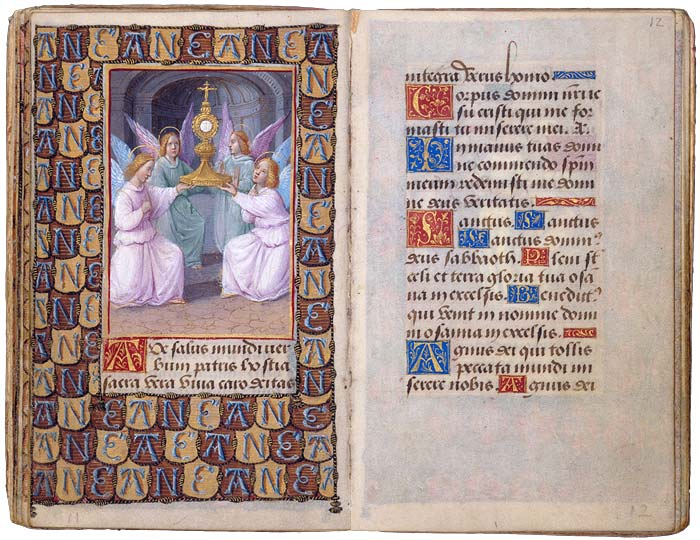 AVe salus mundi ver
bum patris hostia
sacra vera viva caro deitas
12
integra verus homo.
Corpus domini
su cristi qui me for
masti tu miserere mei.
In manus tuas domi
ne commendo spm̄
meum redemisti me domi
ne deus veritatis.
Sanctus. Sanctus
Sanctus domin9
deus sabbaoth. Pleni st̄
celi et terra gloria tua osā
na in excelsis. Benedict9
qui venit in nomine domi
ni osanna in excelsis.
Agnus dei qui tollis
peccata mundi mi
serere nobis. Agnus dei
12